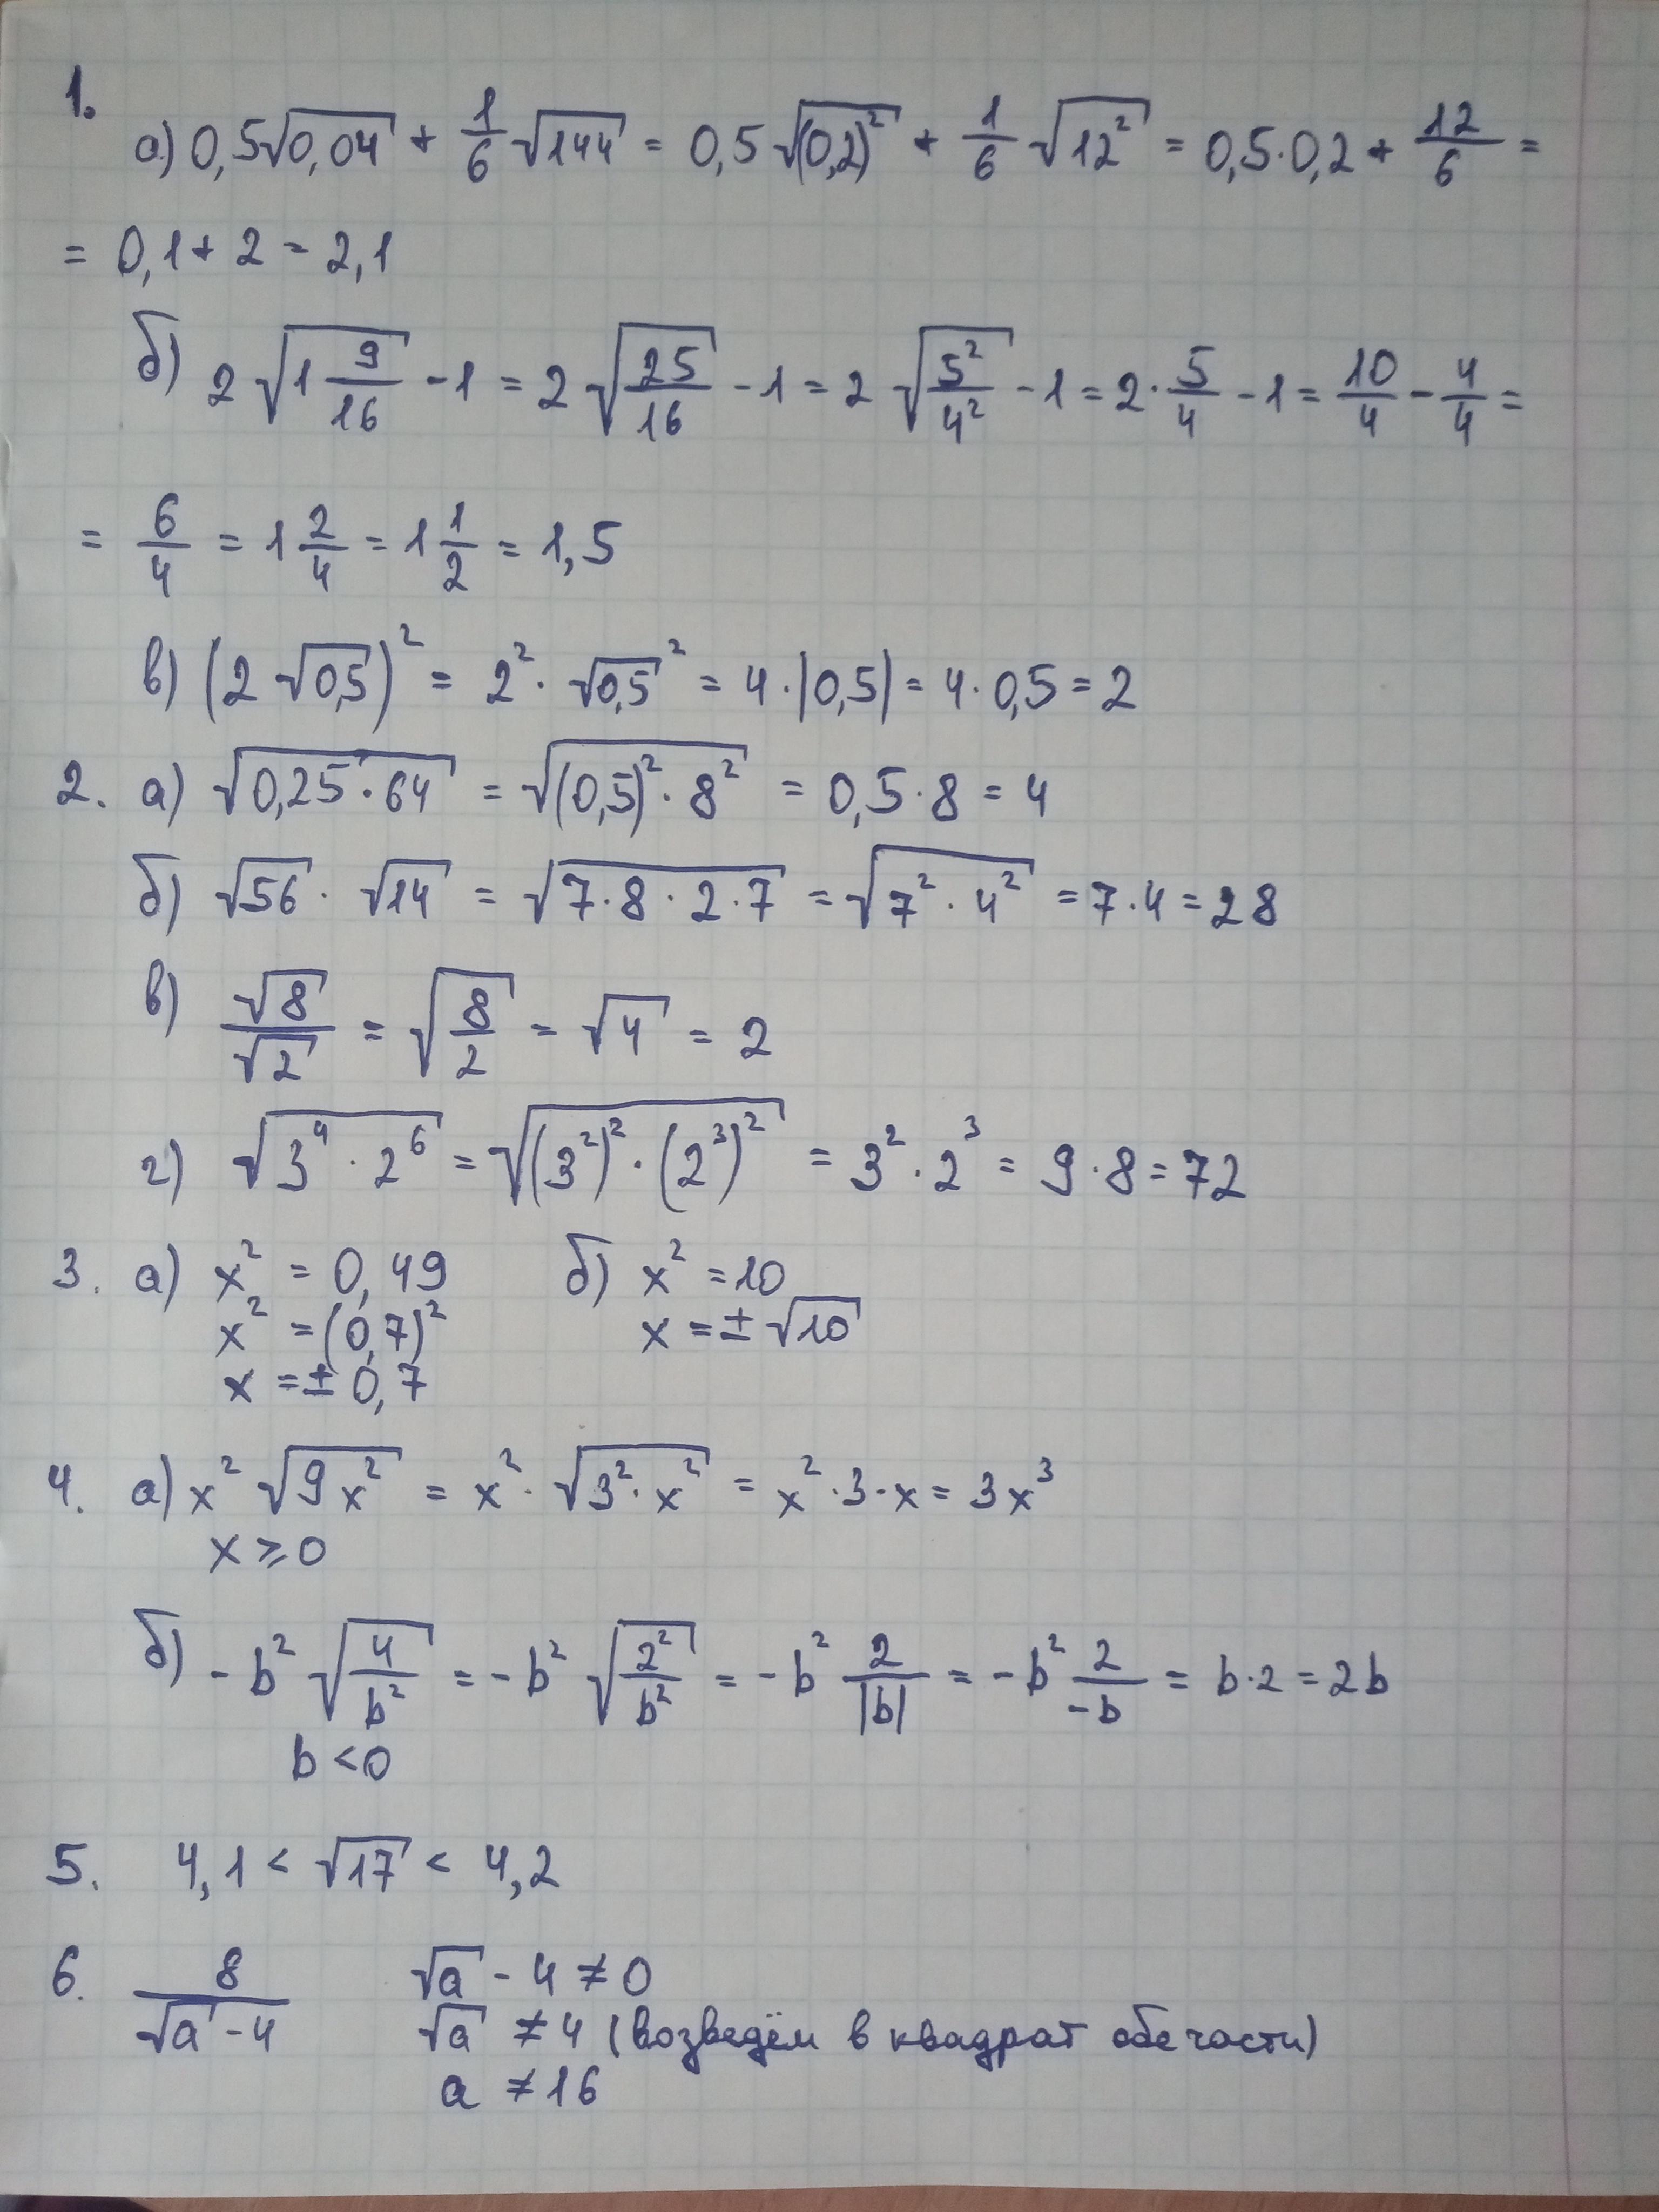 1.
а) 0,5√0,04 + 1/6 √144 = 0,5 √(0,2)² + 1/6 √12² = 0,5·0,2 + 12/6 =
= 0,1 + 2 = 2,1
б) 2 √(1 9/16) - 1 = 2 √(25/16) - 1 = 2 √(5²/4²) - 1 = 2 · 5/4 - 1 = 10/4 - 4/4 =
= 6/4 = 1 2/4 = 1 1/2 = 1,5
в) (2 √0,5)² = 2² · √0,5² = 4 · |0,5| = 4 · 0,5 = 2
2. а) √(0,25 · 64) = √((0,5)² · 8²) = 0,5 · 8 = 4
б) √56 · √14 = √(7 · 8 · 2 · 7) = √(7² · 4²) = 7 · 4 = 28
в) √8/√2 = √(8/2) = √4 = 2
г) √(3⁴ · 2⁶) = √((3²)² · (2³)²) = 3² · 2³ = 9 · 8 = 72
3. а) x² = 0,49 б) x² = 10
x² = (0,7)² x = ± √10
x = ± 0,7
4. а) x² √(9x²) = x² · √(3² · x²) = x² · 3 · x = 3x³
x ⩾ 0
б) - b² √(4/b²) = - b² √(2²/b²) = - b² 2/|b| = - b² 2/-b = b · 2 = 2b
b < 0
5. 4,1 < √17 < 4,2
6. 8/(√a - 4) √a - 4 ≠ 0
√a ≠ 4 (возведём в квадрат обе части)
a ≠ 16